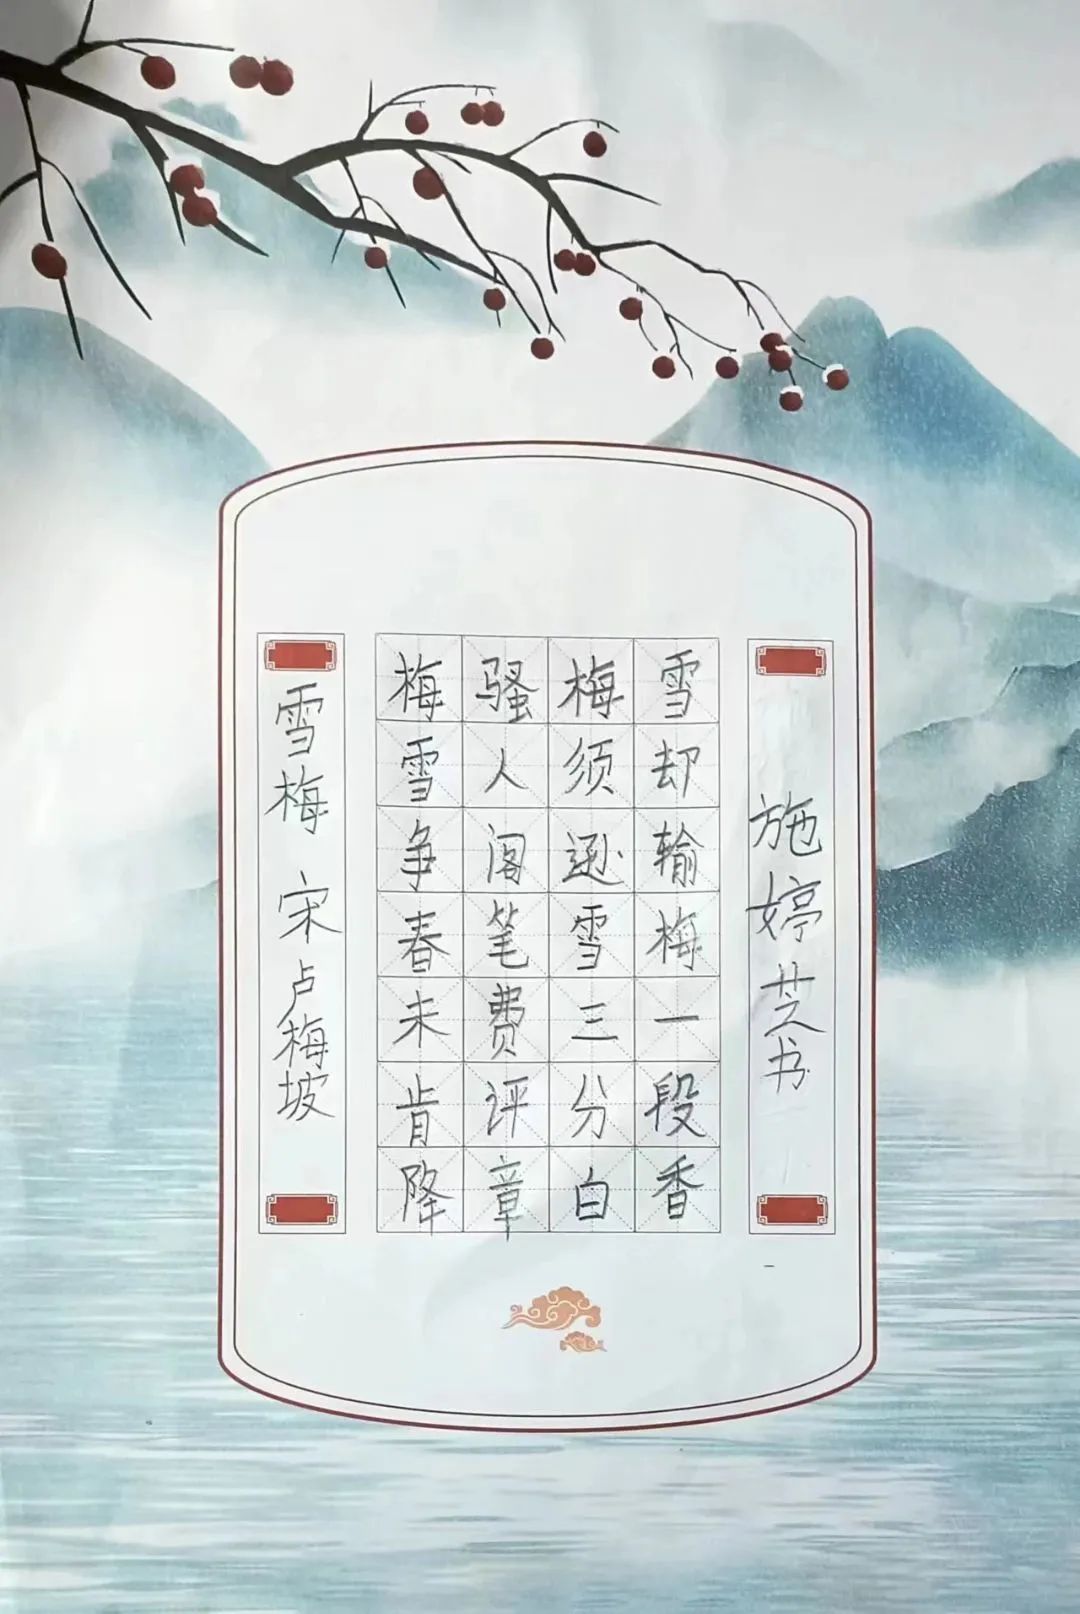 雪梅 宋 卢梅坡
梅雪争春未肯降
骚人阁笔费评章
梅须逊雪三分白
雪却输梅一段香
施婷芝书